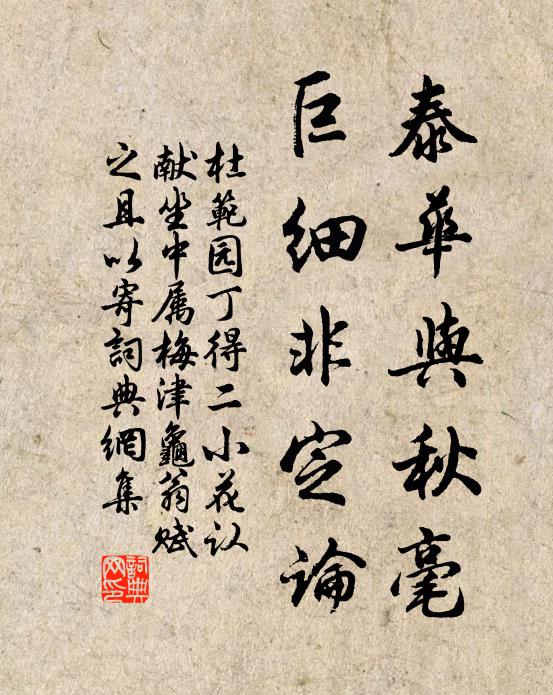 泰華與秋毫
巨細非定論
杜範园丁得二小花以
献坐中属梅津龜翁赋
之且以寄詞典網集
詞典
网印